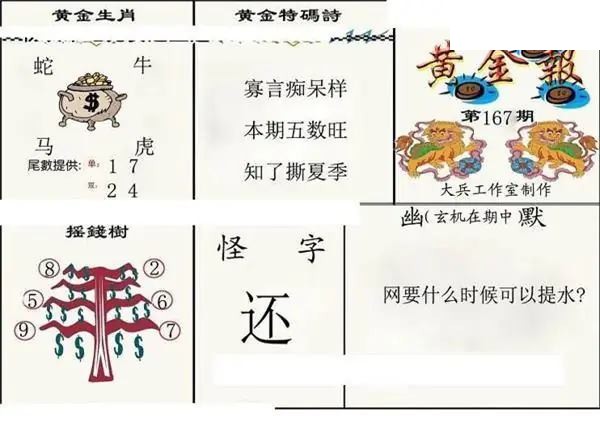 黄金生肖
蛇 牛
马 虎
尾數提供: 单: 1 7
双: 2 4
黄金特碼詩
寡言痴呆样
本期五数旺
知了撕夏季
黄金報
第167期
大兵工作室制作
摇錢樹
⑧ ②
⑤ ⑥
⑨ ⑦
怪字
还
幽(玄机在期中)默
网要什么时候可以提水?